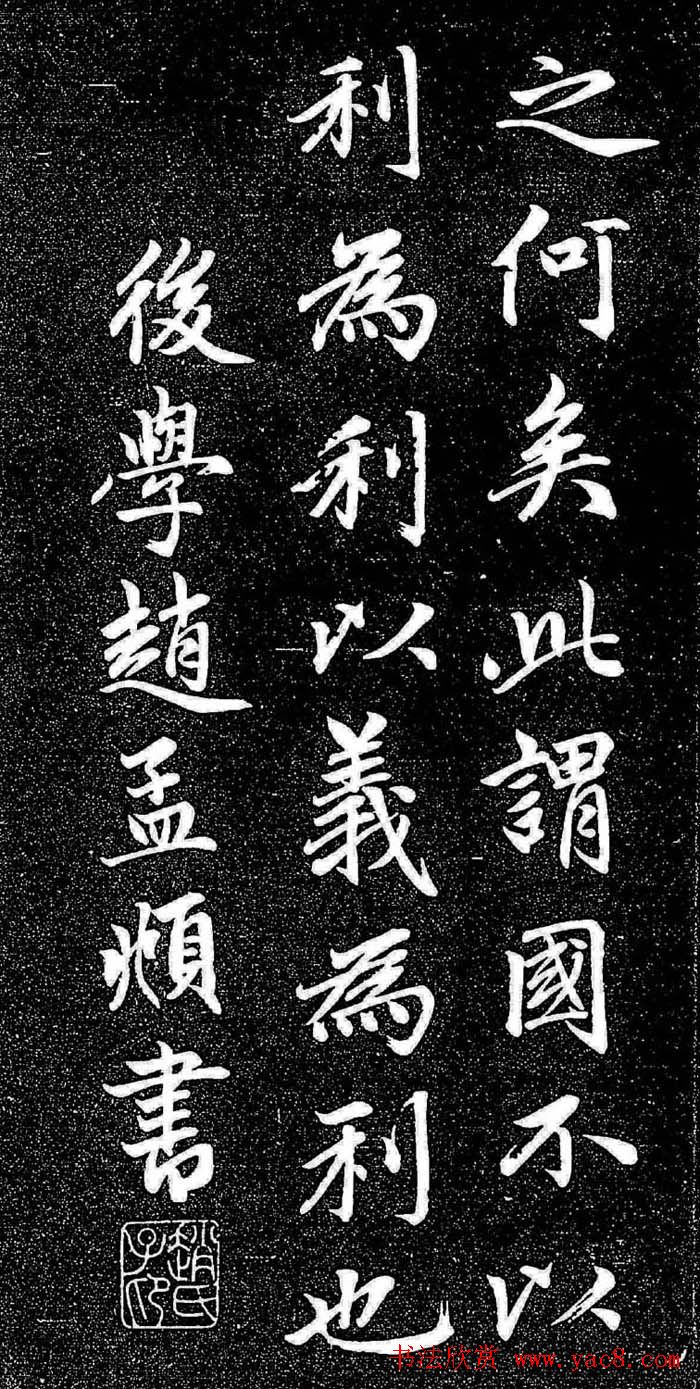 之何矣此謂國不以
利為利以義為利也
後學趙孟頫書
趙氏子昂
书法欣赏 www.yac8.com